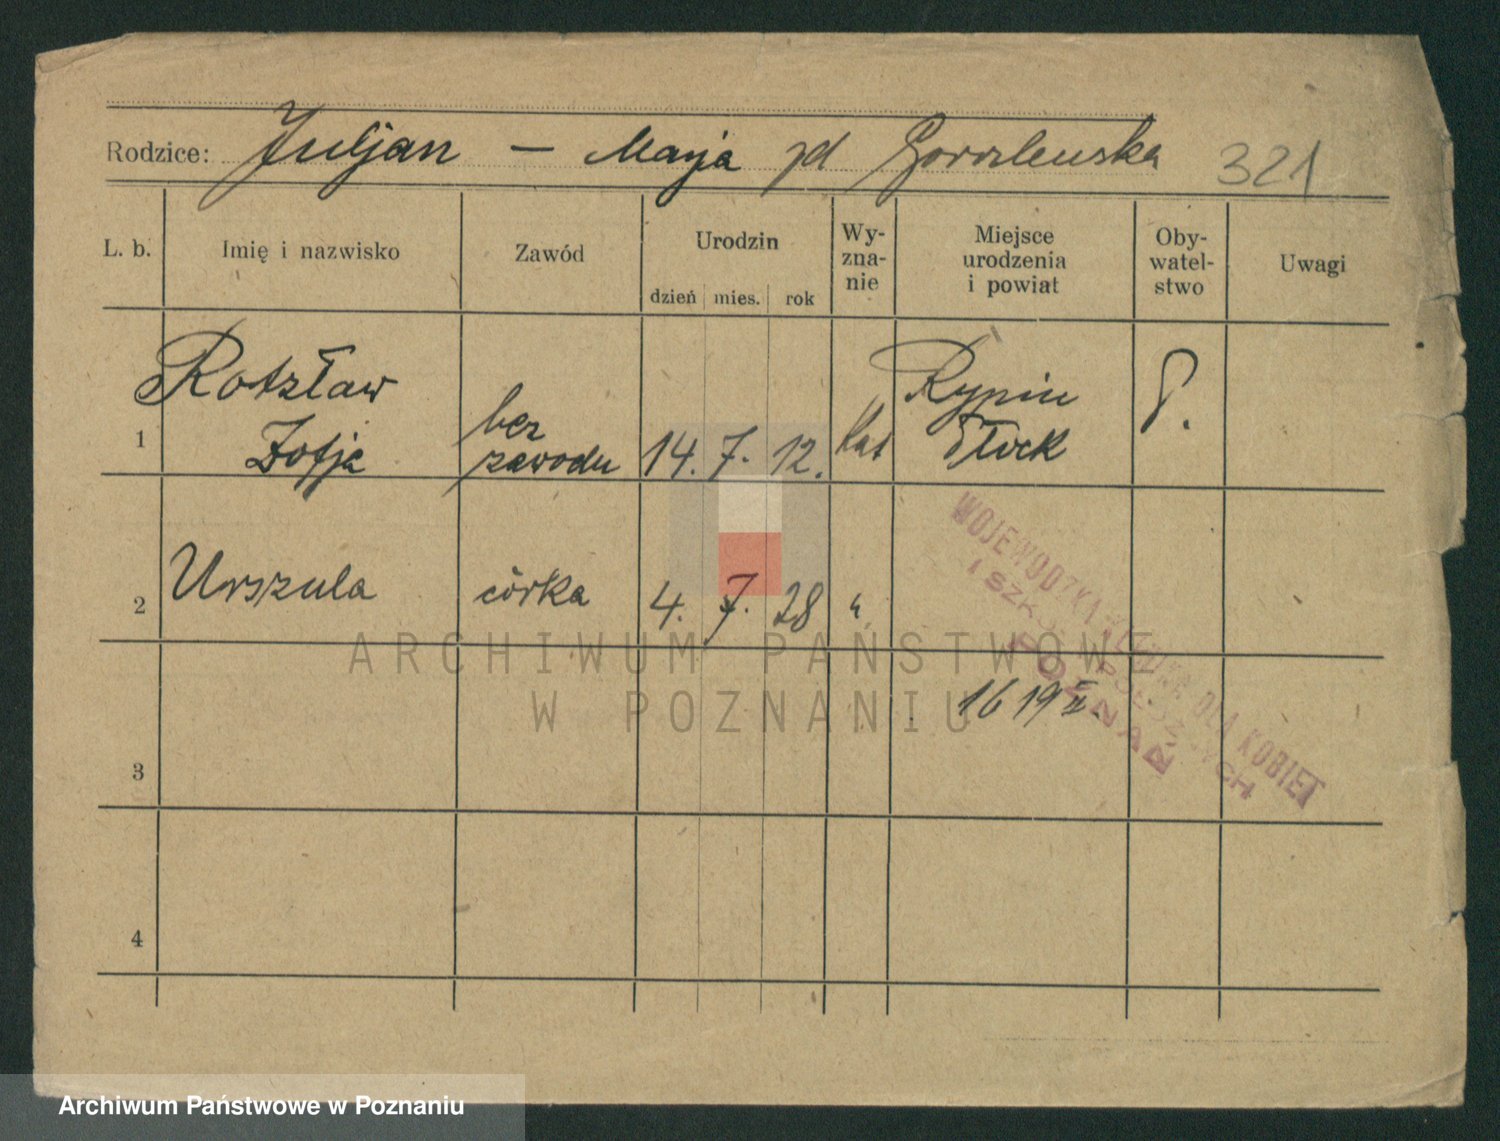 Rodzice: Juljan — Marja zd Gorczlewska 321
L. b. Imię i nazwisko Zawód Urodzin dzień mies. rok Wy-zna-nie Miejsce urodzenia i powiat Oby-watel-stwo Uwagi
1 Rotszław Zofja bez zawodu 14. 7. 12. kat Rypin Płock P.
2 Urszula córka 4. 7. 28 "
WOJEWÓDZKA KLINIKA DLA KOBIET
I SZKOŁA POŁOŻNYCH
POZNAŃ
16 19 II
3
4
ARCHIWUM PAŃSTWOWE
W POZNANIU
Archiwum Państwowe w Poznaniu